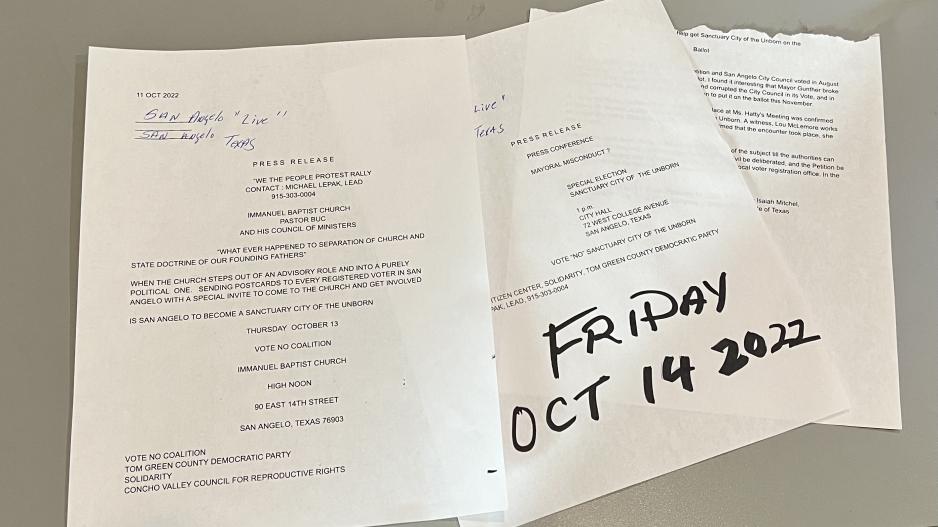 11 OCT 2022
SAN Angelo "Live"
SAN Angelo TEXAS
PRESS RELEASE
"WE THE PEOPLE PROTEST RALLY
CONTACT : MICHAEL LEPAK, LEAD
915-303-0004
IMMANUEL BAPTIST CHURCH
PASTOR BUC
AND HIS COUNCIL OF MINISTERS
"WHAT EVER HAPPENED TO SEPARATION OF CHURCH AND
STATE DOCTRINE OF OUR FOUNDING FATHERS"
WHEN THE CHURCH STEPS OUT OF AN ADVISORY ROLE AND INTO A PURELY
POLITICAL ONE. SENDING POSTCARDS TO EVERY REGISTERED VOTER IN SAN
ANGELO WITH A SPECIAL INVITE TO COME TO THE CHURCH AND GET INVOLVED
IS SAN ANGELO TO BECOME A SANCTUARY CITY OF THE UNBORN
THURSDAY OCTOBER 13
VOTE NO COALITION
IMMANUEL BAPTIST CHURCH
HIGH NOON
90 EAST 14TH STREET
SAN ANGELO, TEXAS 76903
VOTE NO COALITION
TOM GREEN COUNTY DEMOCRATIC PARTY
SOLIDARITY
CONCHO VALLEY COUNCIL FOR REPRODUCTIVE RIGHTS
Live"
TEXAS
PRESS RELEASE
PRESS CONFERENCE
MAYORAL MISCONDUCT ?
SPECIAL ELECTION
SANCTUARY CITY OF THE UNBORN
1 p.m.
CITY HALL
72 WEST COLLEGE AVENUE
SAN ANGELO, TEXAS
VOTE "NO" SANCTUARY CITY OF THE UNBORN
ITIZEN CENTER, SOLIDARITY, TOM GREEN COUNTY DEMOCRATIC PARTY
PAK, LEAD, 915-303-0004
FRIDAY
OCT 14 2022
help get Sanctuary City of the Unborn on the
Ballot
and San Angelo City Council voted in August
I found it interesting that Mayor Gunther broke
corrupted the City Council in its Vote, and in
to put it on the ballot this November.
at Ms. Hatty's Meeting was confirmed
Unborn. A witness, Lou McLemore works
that the encounter took place, she
of the subject till the authorities can
be deliberated, and the Petition be
voter registration office. In the
Isaiah Mitchel,
of Texas